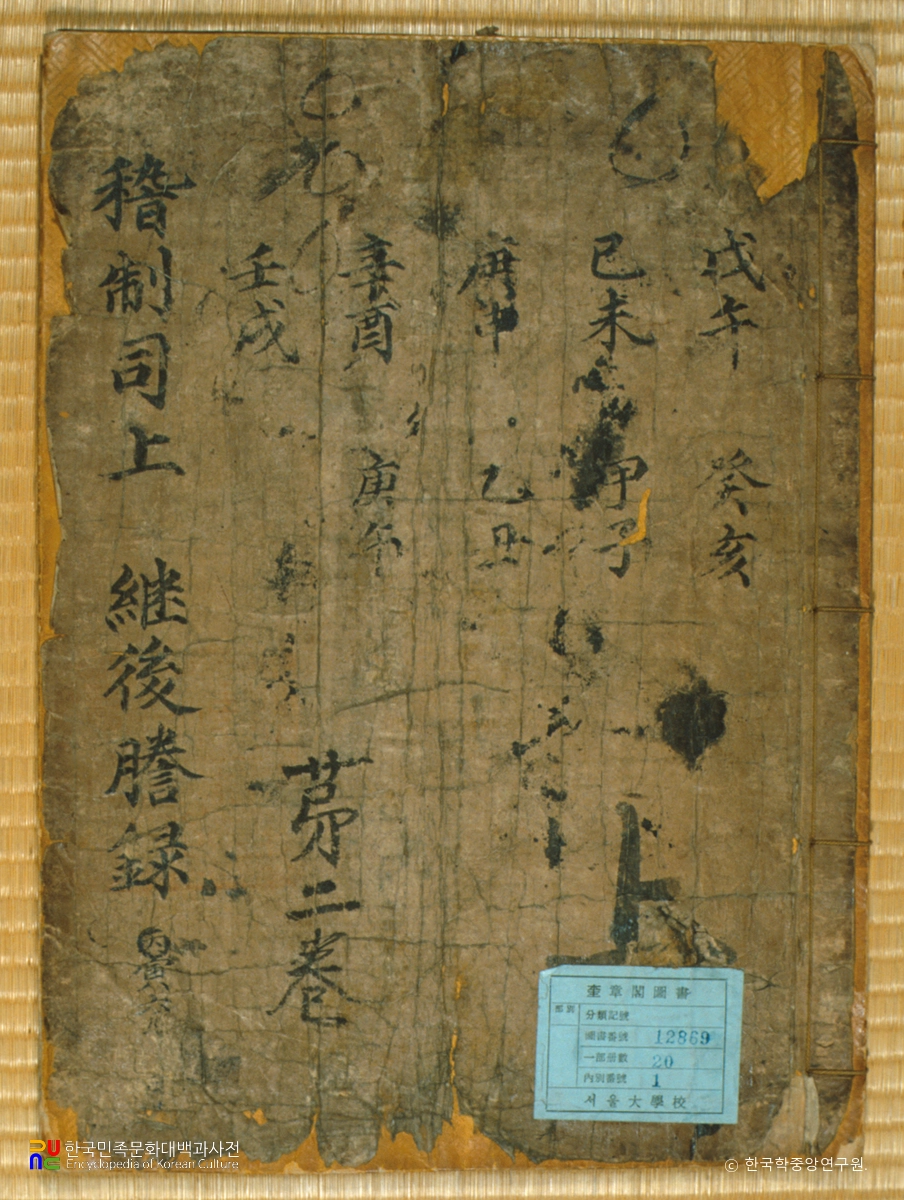 戊午 癸亥
己未 甲子
庚申 乙丑
辛酉 庚午
壬戌
上
第二卷
稽制司上 継後謄録
奎章閣圖書
部別
分類記號
圖書番號 12869
一部冊數 20
內別番號 1
서울大學校
한국민족문화대백과사전
Encyclopedia of Korean Culture
ⓒ 한국학중앙연구원